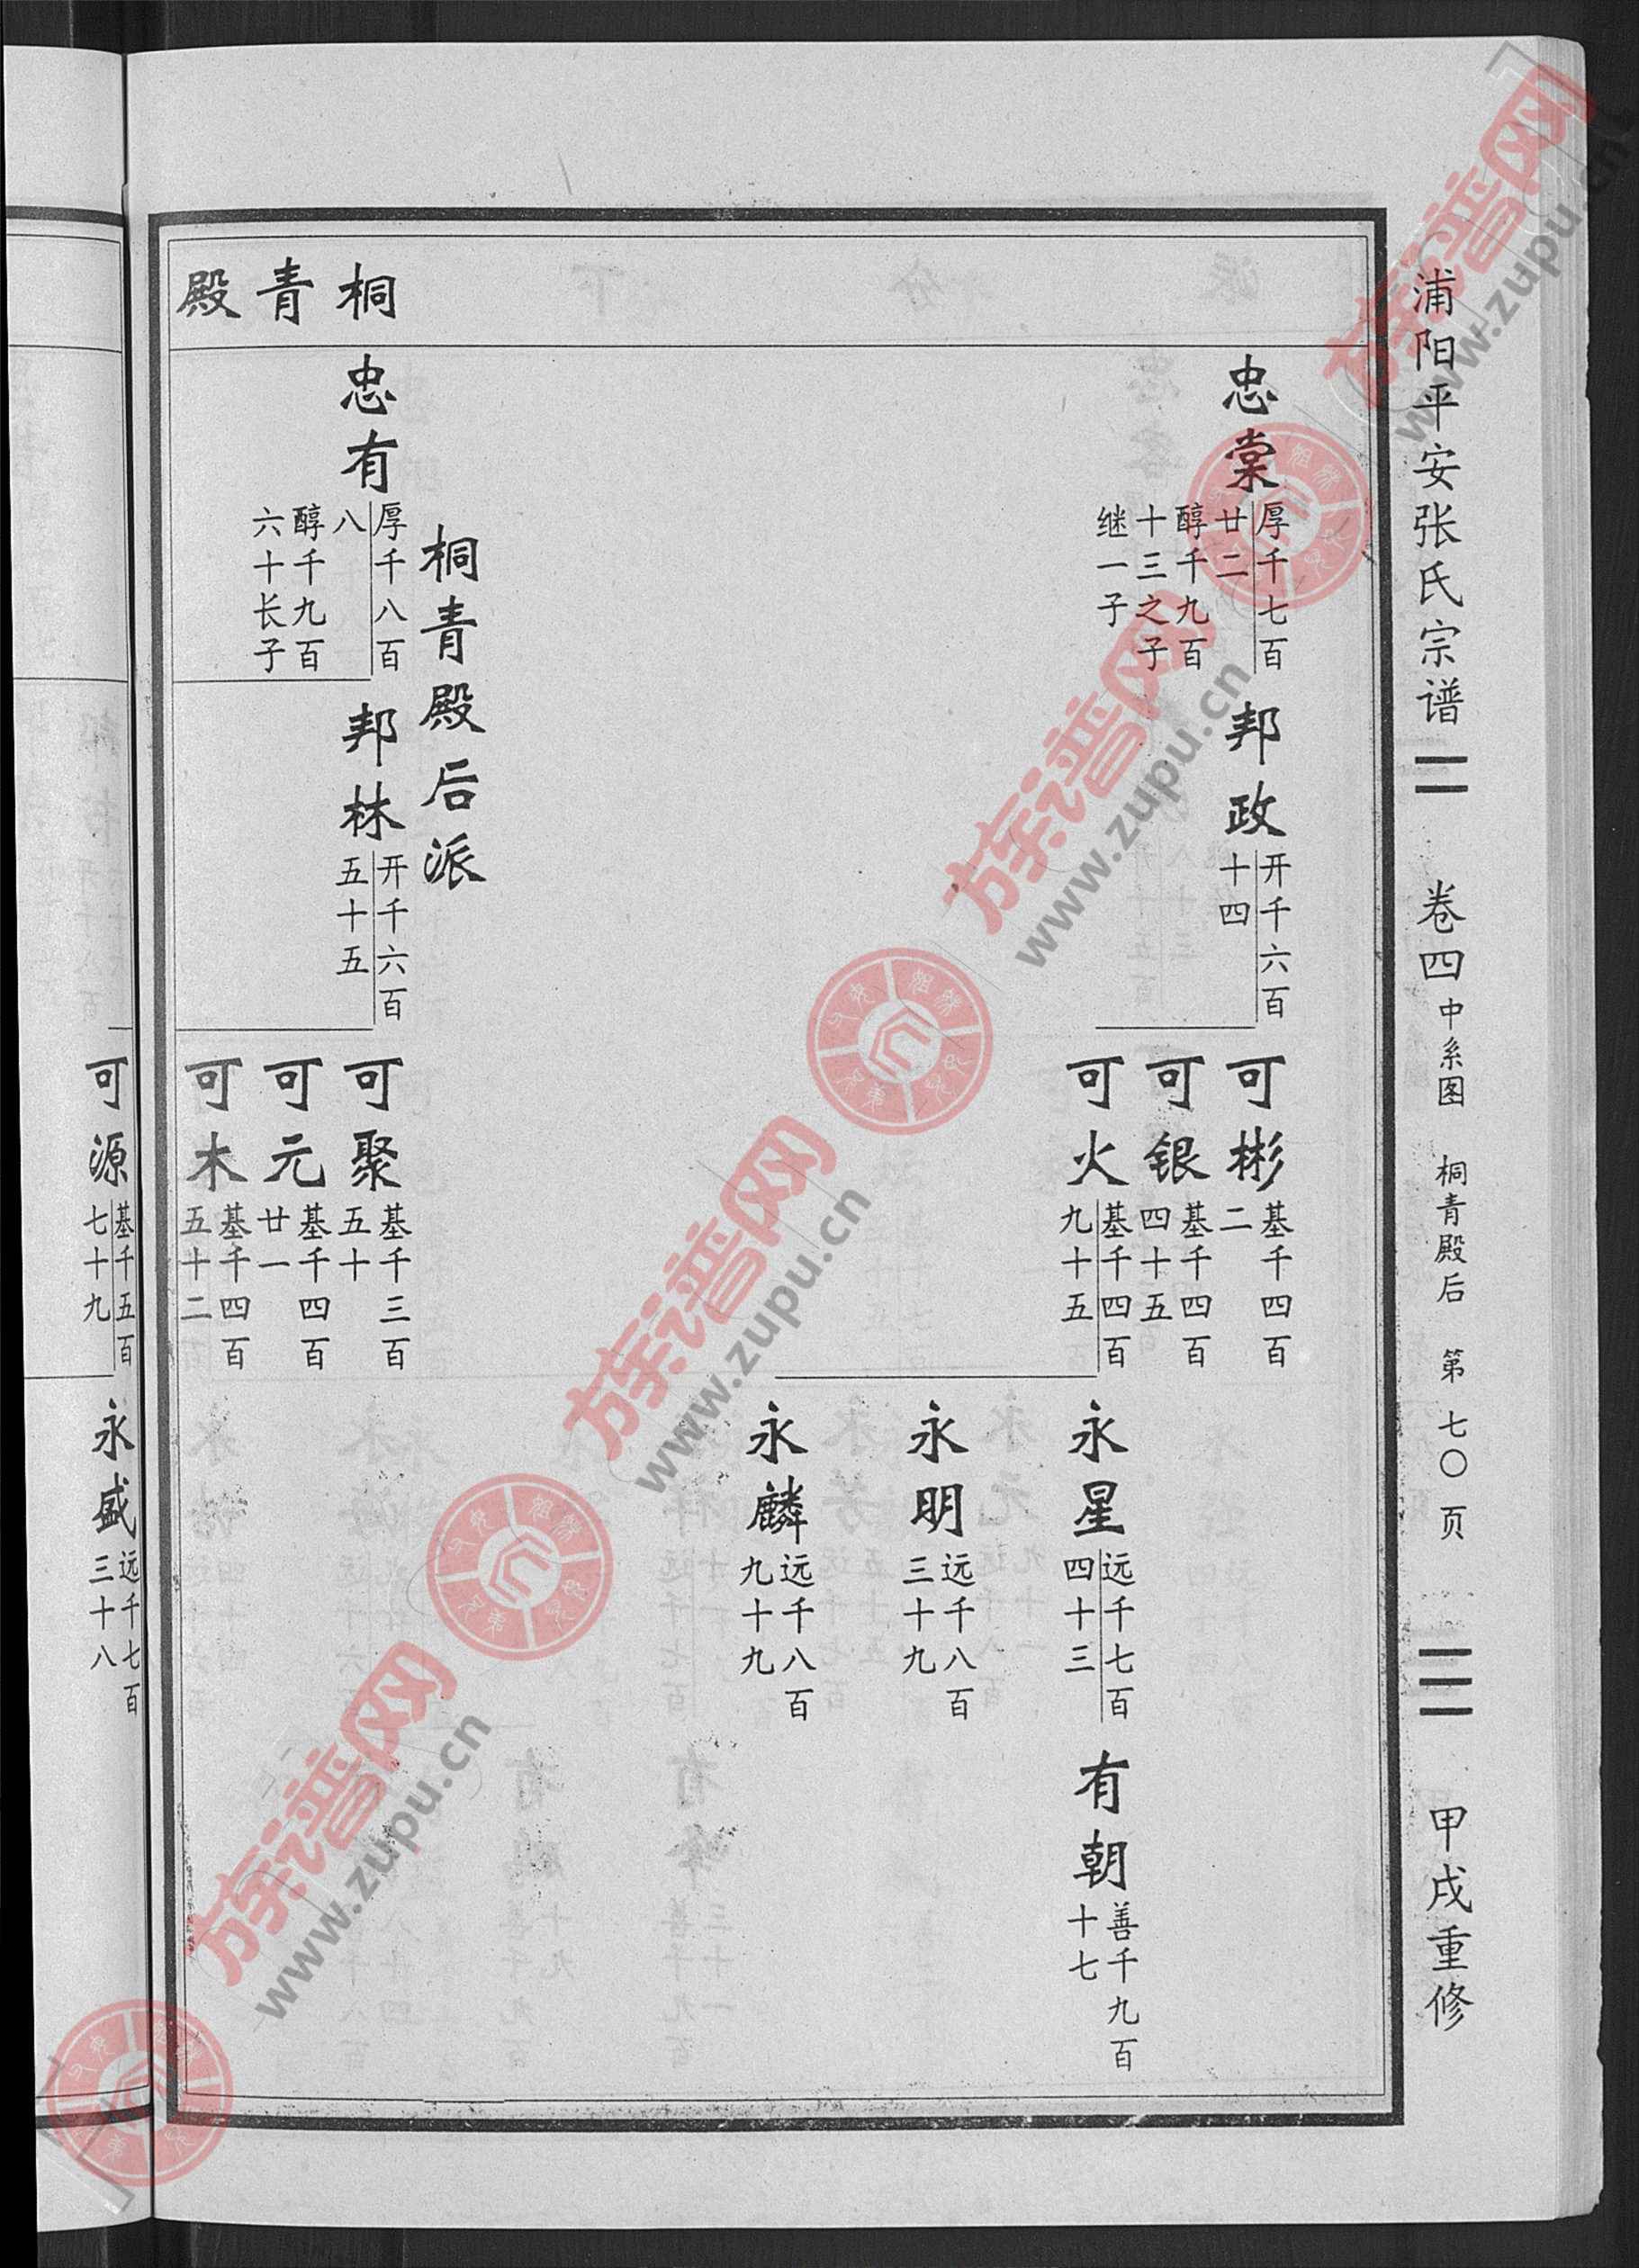 浦阳平安张氏宗谱
卷四
中系图
桐青殿后
第七〇页
甲戌重修
忠棠
厚千七百
廿二
醇千九百
十三之子
继一子
邦政
开千六百
十四
可彬
基千四百
二
可银
基千四百
四十五
可火
基千四百
九十五
永星
远千七百
四十三
有朝
善千九百
十七
永明
远千八百
三十九
永麟
远千八百
九十九
桐青殿
桐青殿后派
忠有
厚千八百
八
醇千九百
六十长子
邦林
开千六百
五十五
可聚
基千三百
五十
可元
基千四百
廿一
可木
基千四百
五十二
可源
基千五百
七十九
永盛
远千七百
三十八
族谱网
www.zupu.cn
族谱网
www.zupu.cn
族谱网
www.zupu.cn
族谱网
www.zupu.cn